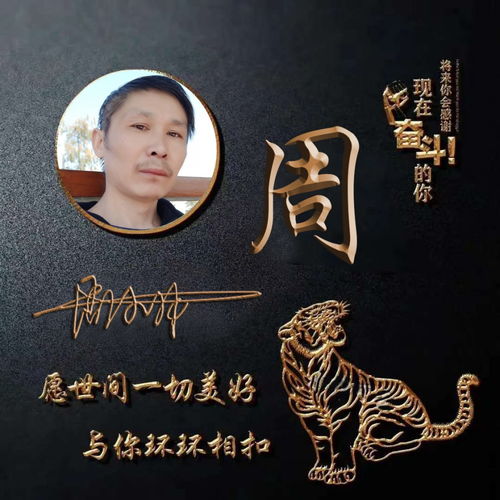 将来你会感谢
现在
奋斗!
的你
周
愿世间一切美好
与你环环相扣